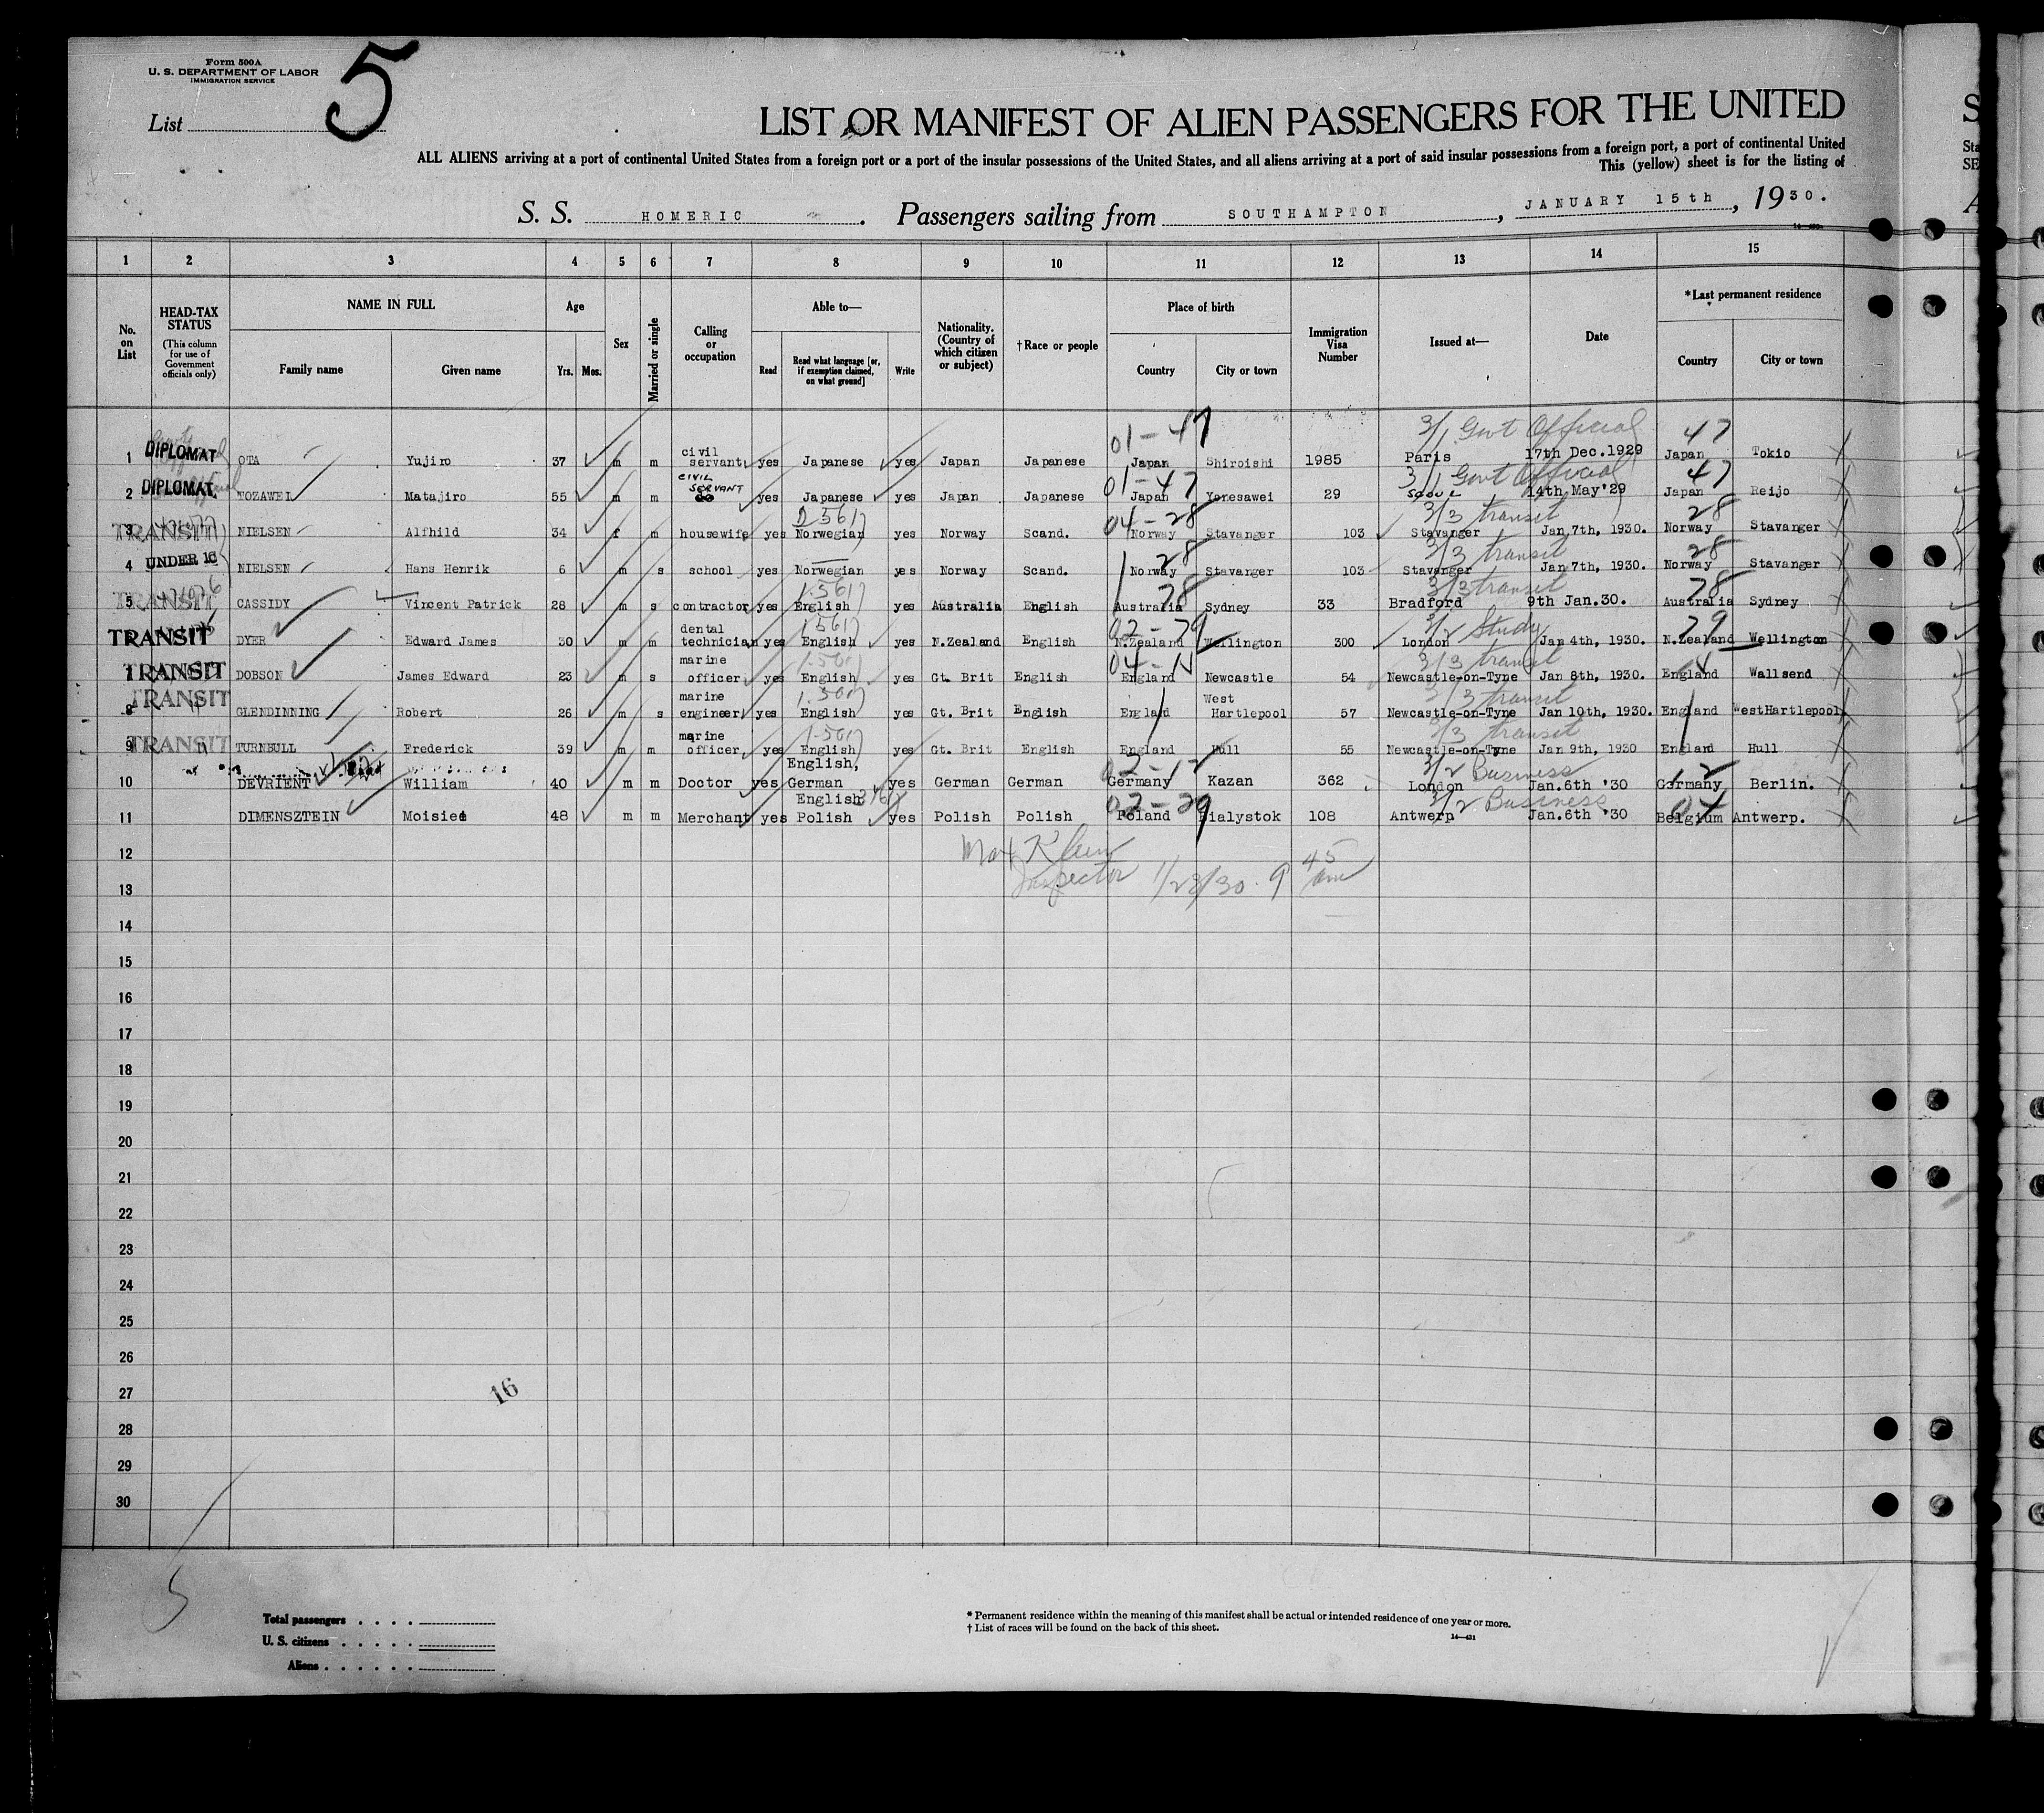 Form 500A
U. S. DEPARTMENT OF LABOR
IMMIGRATION SERVICE
List 5
LIST OR MANIFEST OF ALIEN PASSENGERS FOR THE UNITED
ALL ALIENS arriving at a port of continental United States from a foreign port or a port of the insular possessions of the United States, and all aliens arriving at a port of said insular possessions from a foreign port, a port of continental United
This (yellow) sheet is for the listing of
S. S. HOMERIC. Passengers sailing from SOUTHAMPTON, JANUARY 15th, 1930.
1 2 3 4 5 6 7 8 9 10 11 12 13 14 15
No. on List
HEAD-TAX STATUS (This column for use of Government officials only)
NAME IN FULL
Family name Given name
Age
Yrs. Mos.
Sex
Married or single
Calling or occupation
Able to—
Read Read what language [or, if exemption claimed, on what ground] Write
Nationality. (Country of which citizen or subject)
†Race or people
Place of birth
Country City or town
Immigration Visa Number
Issued at—
Date
*Last permanent residence
Country City or town
01-47 3/1 Govt Official 47
1 DIPLOMAT OTA Yujiro 37 m m civil servant yes Japanese yes Japan Japanese Japan Shiroishi 1985 Paris 17th Dec.1929 Japan Tokio
01-47 3/1 Govt Official 47
2 DIPLOMAT TOZAWEI Matajiro 55 m m CIVIL SERVANT yes Japanese yes Japan Japanese Japan Yonesawei 29 14th May'29 Japan Reijo
04-28 3/3 transit 28
3 TRANSIT NIELSEN Alfhild 34 f m housewife yes Norwegian yes Norway Scand. Norway Stavanger 103 Stavanger Jan 7th, 1930. Norway Stavanger
28 3/3 transit 28
4 UNDER 16 NIELSEN Hans Henrik 6 m s school yes Norwegian yes Norway Scand. Norway Stavanger 103 Stavanger Jan 7th, 1930. Norway Stavanger
3/3 transit
5 TRANSIT CASSIDY Vincent Patrick 28 m s contractor yes English yes Australia English Australia Sydney 33 Bradford 9th Jan.30. Australia Sydney
02-79 3/2 Study 79
TRANSIT DYER Edward James 30 m m dental technician yes English yes N.Zealand English N.Zealand Wellington 300 London Jan 4th, 1930. N.Zealand Wellington
3/3 transit
TRANSIT DOBSON James Edward 23 m s marine officer yes English yes Gt. Brit English England Newcastle 54 Newcastle-on-Tyne Jan 8th, 1930. England Wallsend
3/3 transit
8 TRANSIT GLENDINNING Robert 26 m s marine engineer yes English yes Gt. Brit English England West Hartlepool 57 Newcastle-on-Tyne Jan 10th, 1930. England WestHartlepool
3/3 transit
9 TRANSIT TURNBULL Frederick 39 m m marine officer yes English yes Gt. Brit English England Hull 55 Newcastle-on-Tyne Jan 9th, 1930 England Hull
02-12 3/2 Business 12
10 DEVRIENT William 40 m m Doctor yes English, German yes German German Germany Kazan 362 London Jan.6th '30 Germany Berlin.
02-29 3/2 Business 04
11 DIMENSZTEIN Moisied 48 m m Merchant yes English Polish yes Polish Polish Poland Bialystok 108 Antwerp Jan.6th '30 Belgium Antwerp.
12 Max Klein
13 Inspector 1/23/30 9 45 am
14
15
16
17
18
19
20
21
22
23
24
25
26
27 16
28
29
30
5
Total passengers
U. S. citizens
Aliens
* Permanent residence within the meaning of this manifest shall be actual or intended residence of one year or more.
† List of races will be found on the back of this sheet.
14—431